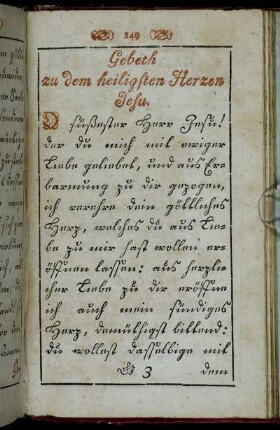 149
Gebeth
zu dem heiligsten Herzen
Jesu.
O süßester Herr Jesu!
der du mich mit ewiger
Liebe geliebet, und aus Er-
barmung zu dir gezogen,
ich verehre dein göttliches
Herz, welches du aus Lie-
be zu mir hast wollen er-
öffnen lassen: aus herzli-
cher Liebe zu dir eröffne
ich auch mein sündiges
Herz, demüthigst bittend:
du wollest dasselbige mit
3 dem